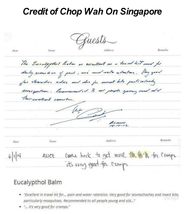 Credit of Chop Wah On Singapore
Guests
Date
Name
Address
Remarks
The Eucalypthol Balm is excellent as a travel kit used for
daily prevention of pain, sore and water retention. Very good
for stomaches aches and also for insect bite particularly
mosquitoes. Recommended to all people young and old
Date
Name
Address
Remarks
Alice
Come back to get more
for cramps.
It's very good for cramps.
Eucalypthol Balm
"Excellent in travel kit for... pain and water retention. Very good for stomachaches and insect bites,
particularly mosquitoes. Recommended to all people young and old..."
"... it's very good for cramps"